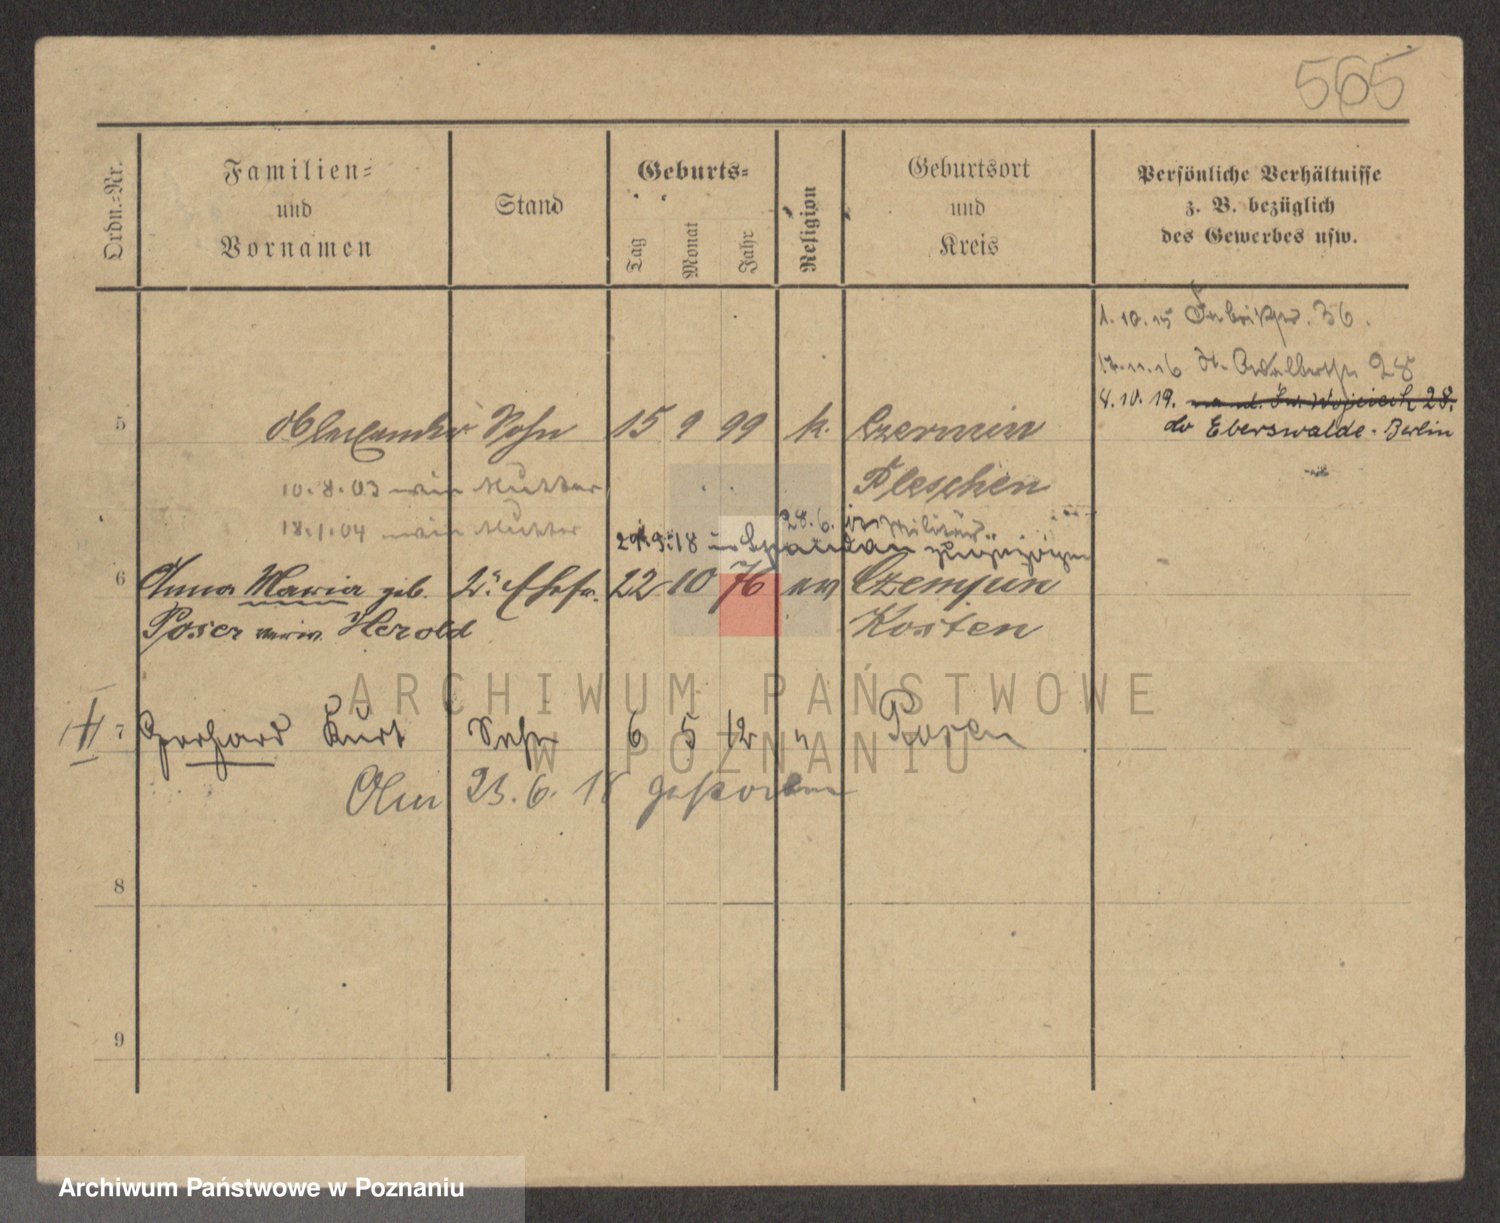 565
Ordn.-Nr.
Familien-
und
Vornamen
Stand
Geburts-
Tag
Monat
Jahr
Religion
Geburtsort
und
Kreis
Persönliche Verhältnisse
z. B. bezüglich
des Gewerbes usw.
1. 10. 15 Fabrikstr. 36.
17. 11. 16 St. Adalbertstr. 28
4. 10. 19. Św. Wojciech 28.
do Eberswalde - Berlin
5 Alexander Sohn 15 9 99 k. Czermin
Pleschen
10. 8. 03 Mutter
18. 1. 04 Mutter
28. 6. Militär
29. 9. 18 in Spandau
6 Anna Maria geb. 2. Ehefr. 22 10 76 ev Czempin
Poser verw. Herold Kosten
7 Gerhard Kurt Sohn 6 5 12 " Posen
Am 23. 6. 18 gestorben
8
9
ARCHIWUM PAŃSTWOWE
W POZNANIU
Archiwum Państwowe w Poznaniu